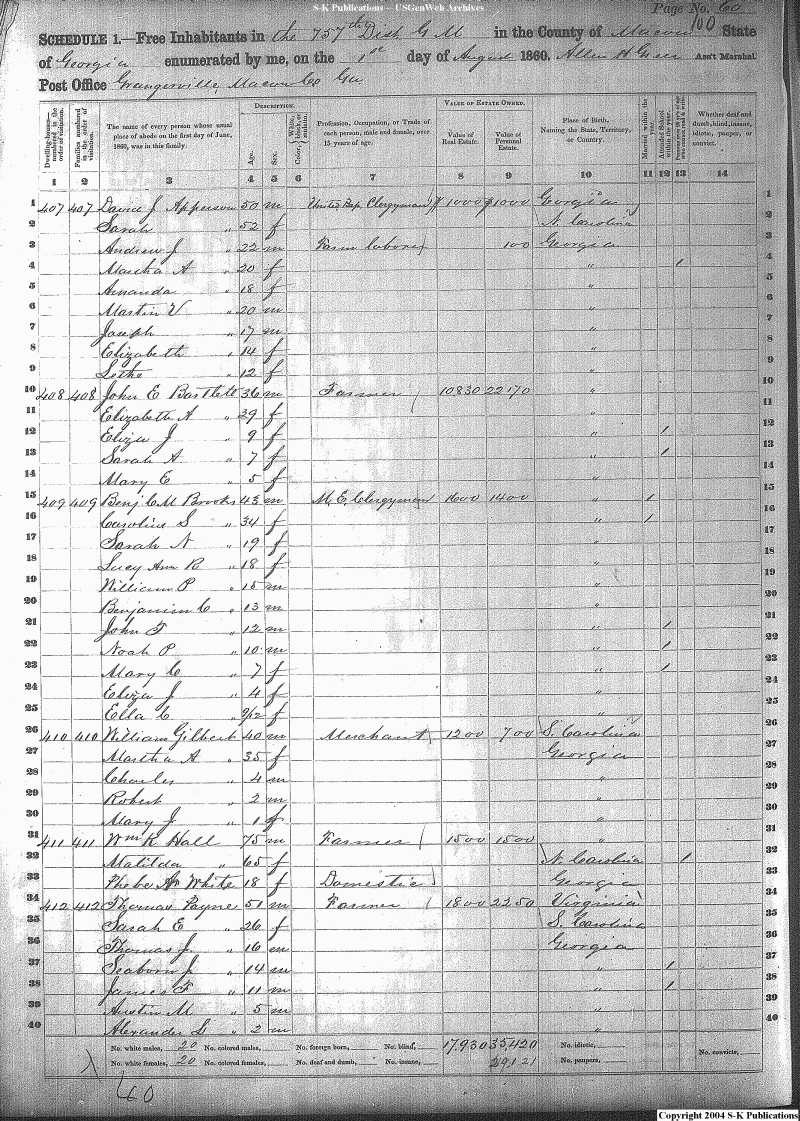 S-K Publications – USGenWeb Archives
Page No. 60
100
SCHEDULE 1.—Free Inhabitants in the 757th Dist G M in the County of Macon State
of Georgia enumerated by me, on the 1st day of August 1860. Allen H Greer Ass't Marshal.
Post Office Grangerville, Macon Co Ga
Dwelling-houses numbered in the order of visitation.
Families numbered in the order of visitation.
The name of every person whose usual place of abode on the first day of June, 1860, was in this family.
DESCRIPTION.
Age.
Sex.
Color, White, black, or mulatto.
Profession, Occupation, or Trade of each person, male and female, over 15 years of age.
VALUE OF ESTATE OWNED.
Value of Real Estate.
Value of Personal Estate.
Place of Birth, Naming the State, Territory, or Country.
Married within the year.
Attended School within the year.
Whether deaf and dumb, blind, insane, idiotic, pauper, or convict.
1 2 3 4 5 6 7 8 9 10 11 12 13 14
1 407 407 David J Apperson 50 m United Bap Clergyman $ 1000 $1000 Georgia 1
2 Sarah " 52 f N. Carolina 2
3 Andrew J " 22 m Farm laborer 100 Georgia 3
4 Martha A " 20 f " / 4
5 Amanda " 18 f " 5
6 Martin V " 20 m " 6
7 Joseph " 17 m " 7
8 Elizabeth " 14 f " 8
9 Lethe " 12 f 9
10 408 408 John E Bartlett 36 m Farmer 10830 22170 " 10
11 Elizabeth A " 39 f " 11
12 Eliza J " 9 f " / 12
13 Sarah A " 7 f " / 13
14 Mary E " 5 f " 14
15 409 409 Benj C M Brooks 43 m M. E. Clergyman 1600 1400 " / 15
16 Caroline S " 34 f " / 16
17 Sarah N " 19 f " 17
18 Lucy Ann R " 18 f " 18
19 William P " 15 m " 19
20 Benjamin C " 13 m " 20
21 John F " 12 m " / 21
22 Noah P " 10 m " / 22
23 Mary C " 7 f " / 23
24 Eliza J " 4 f " 24
25 Ella C " 9/12 f " 25
26 410 410 William Gilbert 40 m Merchant 1200 700 S. Carolina 26
27 Martha A " 35 f Georgia 27
28 Charles " 4 m " 28
29 Robert " 2 m " 29
30 Mary J " 1 f " 30
31 411 411 Wm K Hall 75 m Farmer 1500 1500 " 31
32 Matilda " 65 f N. Carolina / 32
33 Phebe A White 18 f Domestic Georgia 33
34 412 412 Thomas Payne 51 m Farmer 1800 2250 Virginia 34
35 Sarah E " 26 f S. Carolina 35
36 Thomas J " 16 m Georgia 36
37 Seaborn J " 14 m " / 37
38 James F " 11 m " / 38
39 Austin M " 5 m " 39
40 Alexander S " 2 m " 40
No. white males, 20 No. colored males, No. foreign born, No. blind, 17,930 35,420 No. idiotic,
No. white females, 20 No. colored females, No. deaf and dumb, No. insane, No. paupers, No. convicts,
40
Copyright 2004 S-K Publications